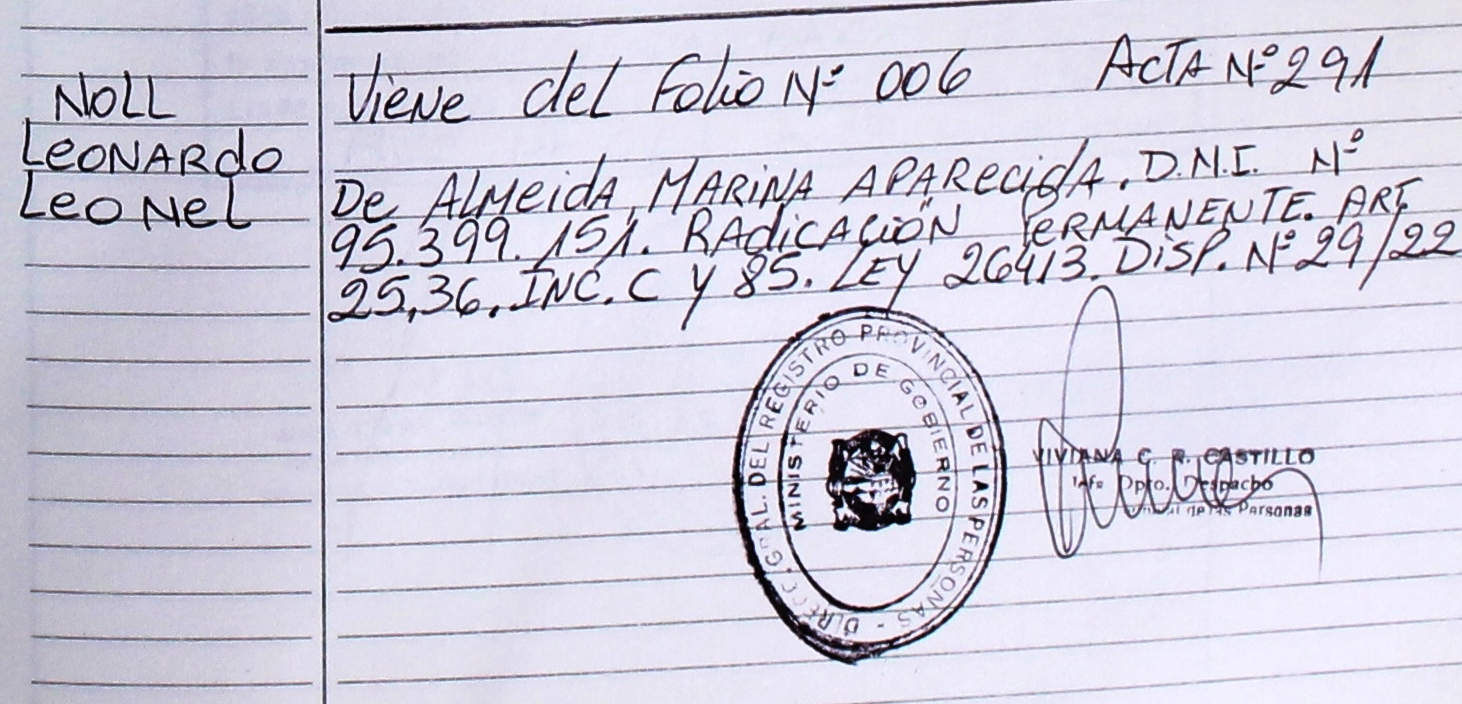 NOLL
LEONARDO
LEONEL
Viene del Folio Nº 006 ACTA Nº 291
De ALMEIDA, MARINA APARECIDA. D.N.I. Nº
95.399.151. RADICACIÓN PERMANENTE. ART
25,36. INC. C Y 85. LEY 26413. DISP. Nº 29/22
DIRECC. GRAL. DEL REGISTRO PROVINCIAL DE LAS PERSONAS -
MINISTERIO DE GOBIERNO
VIVIANA C. R. CASTILLO
Dpto. Despacho
Personas